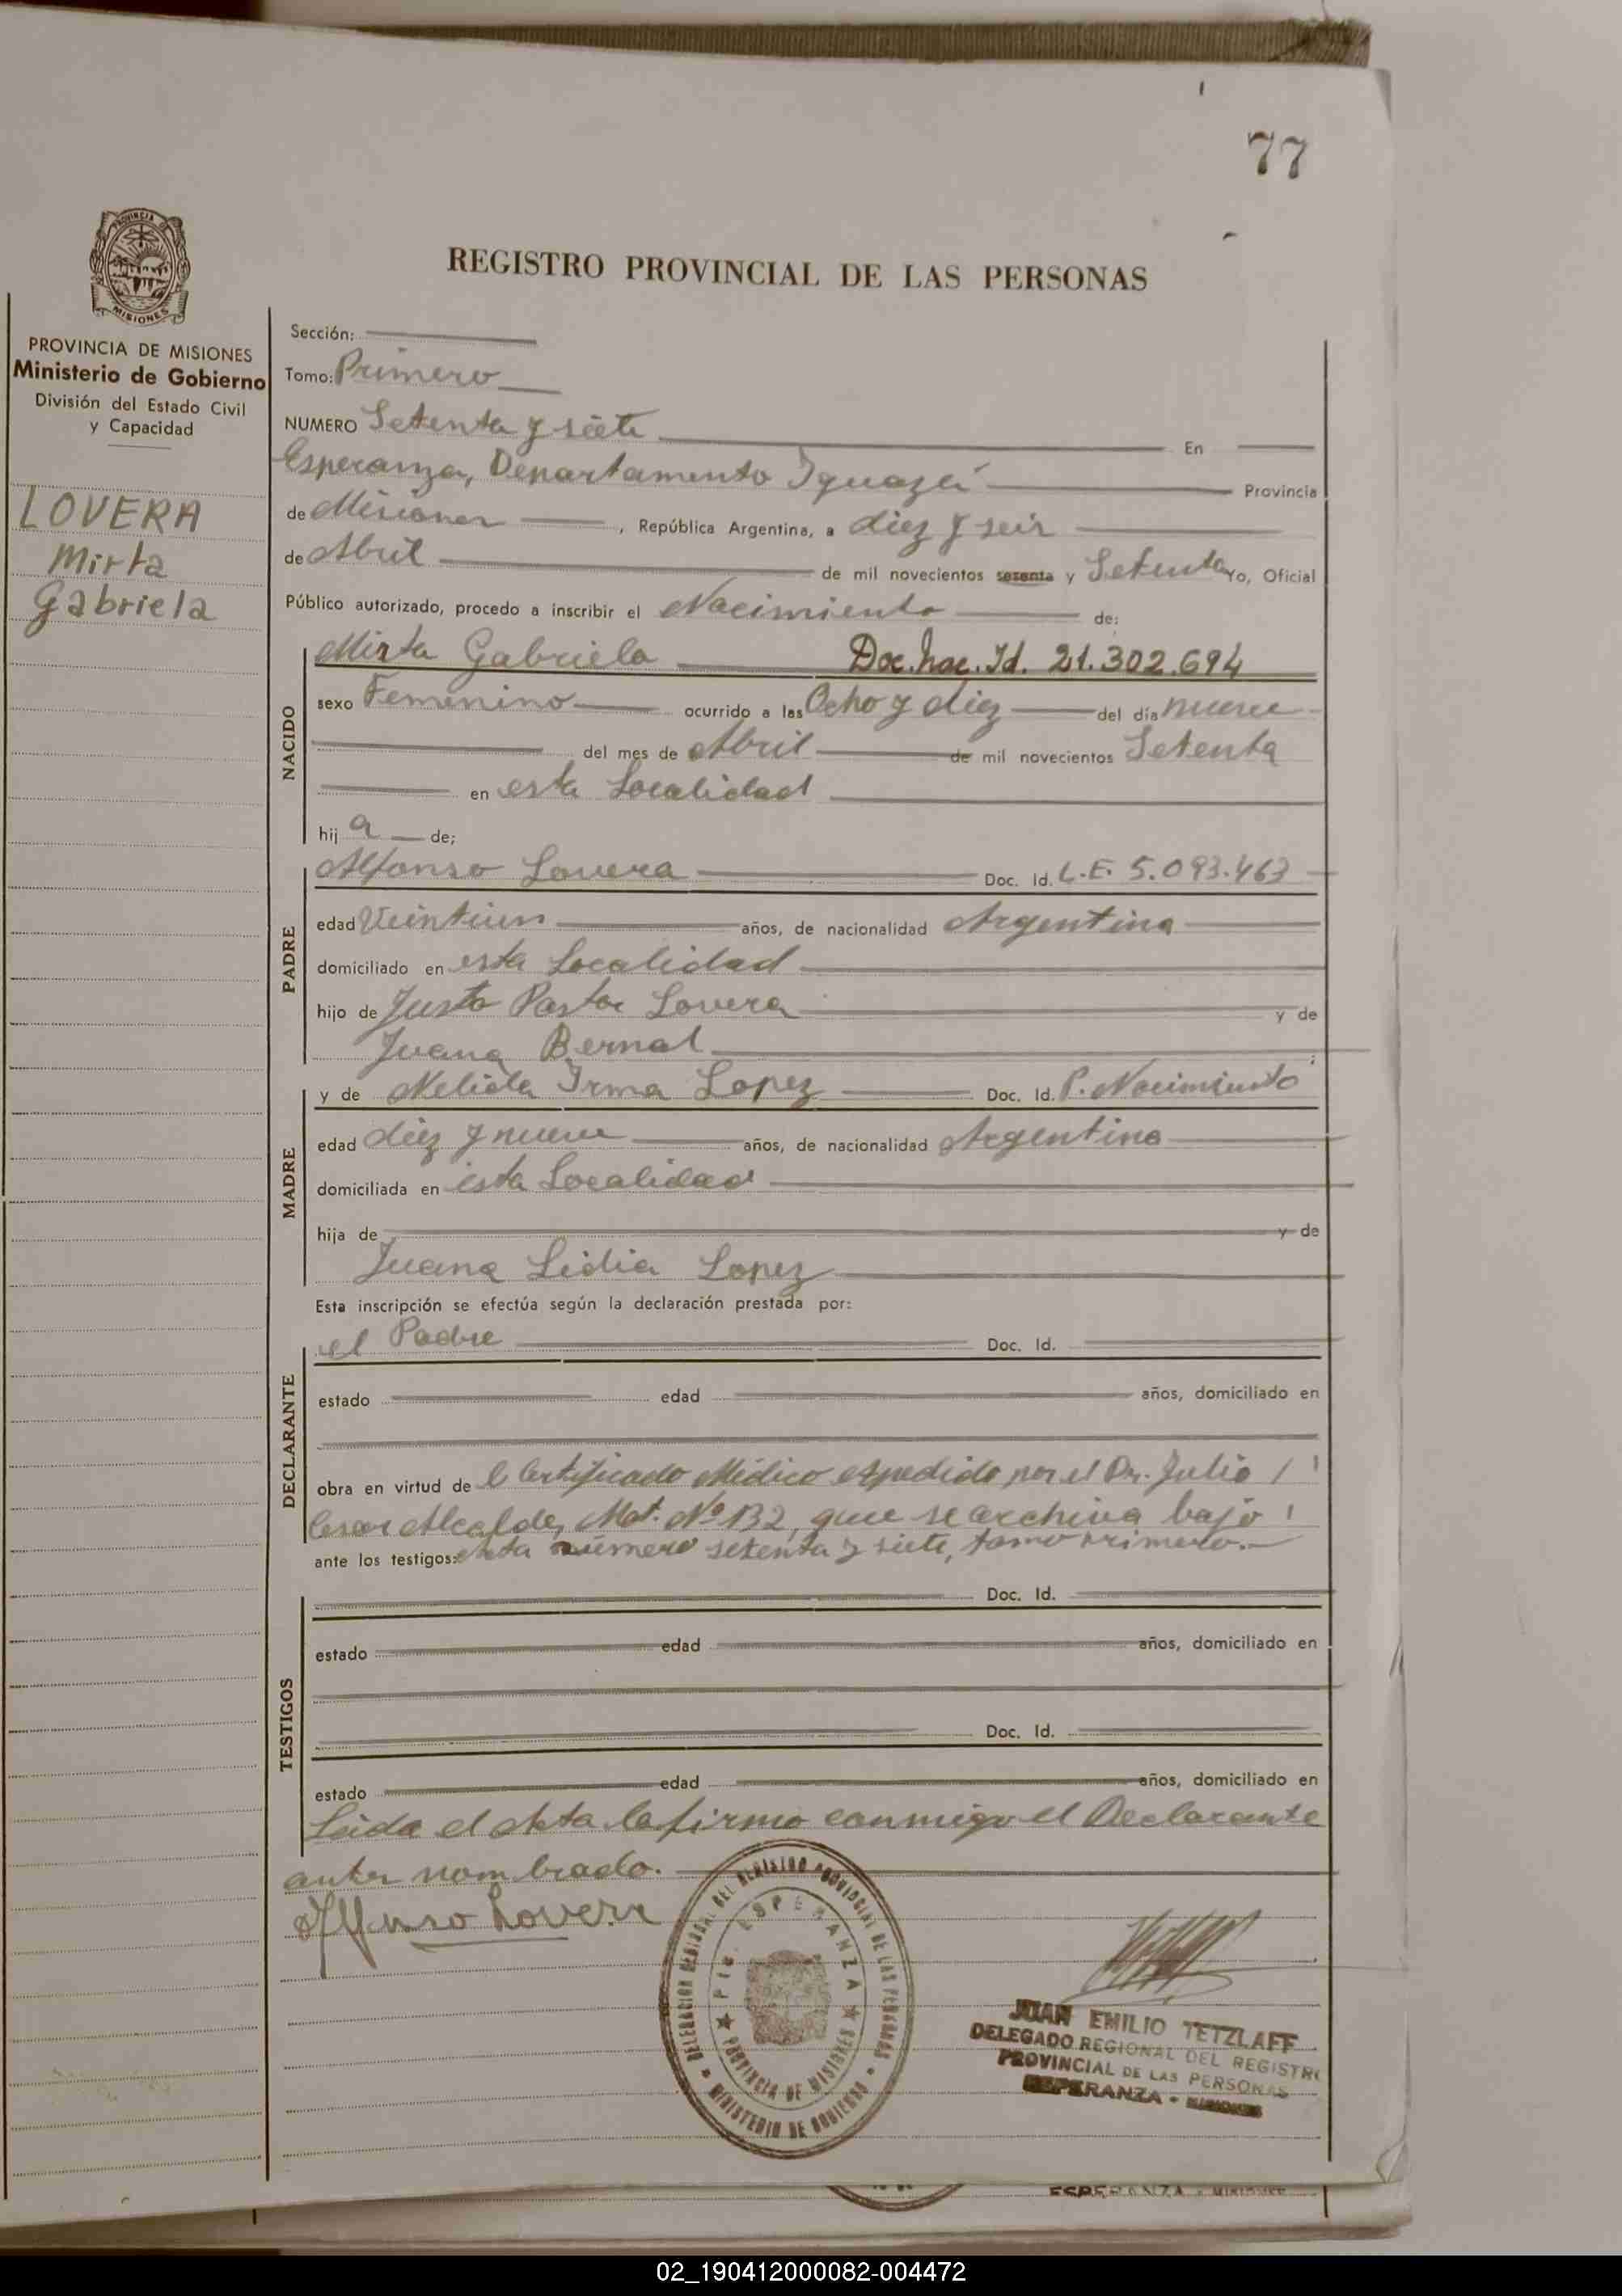 77
PROVINCIA
MISIONES
PROVINCIA DE MISIONES
Ministerio de Gobierno
División del Estado Civil
y Capacidad
LOVERA
Mirta
Gabriela
REGISTRO PROVINCIAL DE LAS PERSONAS
Sección:
Tomo: Primero
NUMERO Setenta y siete En
Esperanza, Departamento Iguazú Provincia
de Misiones, República Argentina, a diez y seis
de Abril de mil novecientos sesenta y Setenta Yo, Oficial
Público autorizado, procedo a inscribir el Nacimiento de:
Mirta Gabriela Doc. Nac. Id. 21.302.694
NACIDO
sexo Femenino ocurrido a las Ocho y diez del día nueve
del mes de Abril de mil novecientos Setenta
en esta Localidad
hij a de;
Alfonso Lovera Doc. Id. L.E. 5.093.463
PADRE
edad Veintiun años, de nacionalidad Argentina
domiciliado en esta Localidad
hijo de Justo Pastor Lovera y de
Juana Bernal
y de Nelida Irma Lopez Doc. Id. P. Nacimiento
MADRE
edad diez y nueve años, de nacionalidad Argentina
domiciliada en esta Localidad
hija de y de
Juana Lidia Lopez
Esta inscripción se efectúa según la declaración prestada por:
el Padre Doc. Id.
DECLARANTE
estado edad años, domiciliado en
obra en virtud de l Certificado Médico expedido por el Dr. Julio
Cesar Alcalde, Mat. Nº 132, que se archiva bajo
ante los testigos: Acta número setenta y siete, tomo primero.
Doc. Id.
TESTIGOS
estado edad años, domiciliado en
Doc. Id.
estado edad años, domiciliado en
Leida el Acta la firma conmigo el Declarante
antes nombrado.
Alfonso Lovera
DELEGACION REGIONAL DEL REGISTRO PROVINCIAL DE LAS PERSONAS
MINISTERIO DE GOBIERNO
Pto. ESPERANZA
PROVINCIA DE MISIONES
JUAN EMILIO TETZLAFF
DELEGADO REGIONAL DEL REGISTR
PROVINCIAL DE LAS PERSONAS
ESPERANZA - MISIONES
ESPERANZA - MISIONES
02_190412000082-004472